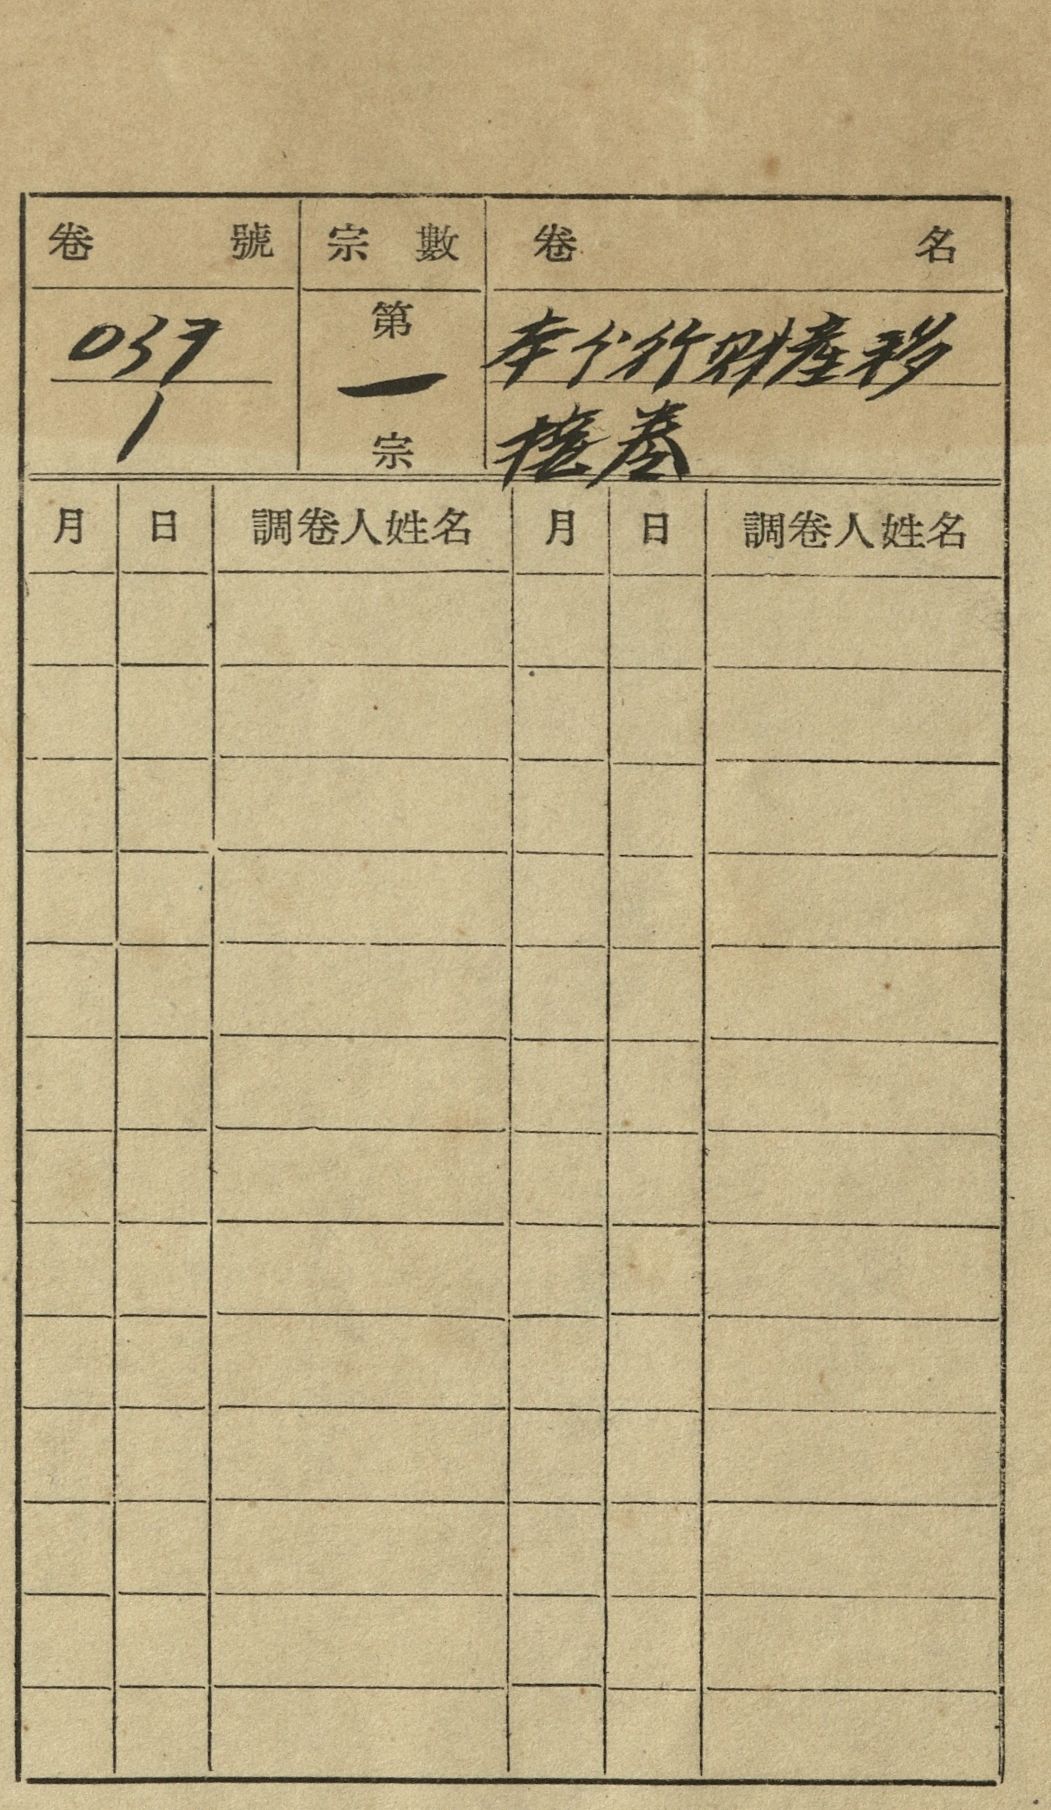 卷號 宗數 卷名
037 第 本分行財產移
1 一 權卷
宗
月 日 調卷人姓名 月 日 調卷人姓名